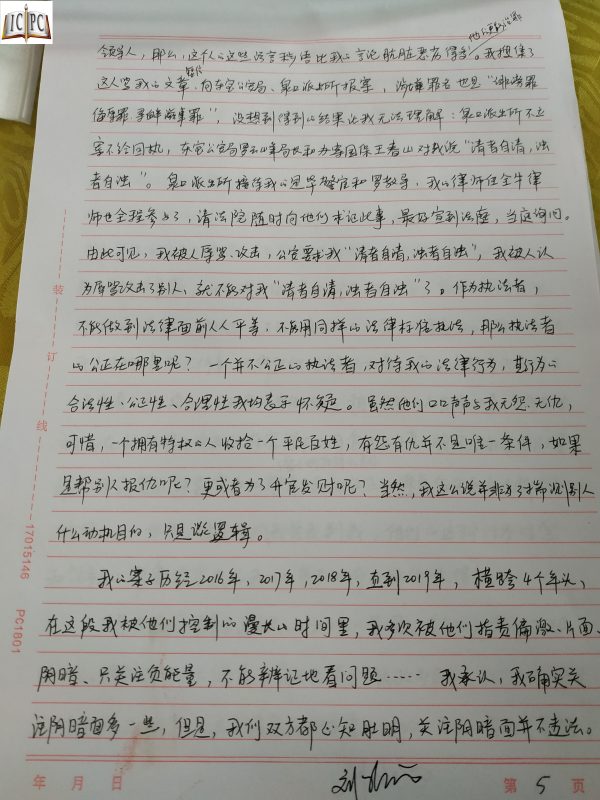 ICPC
他又再致治罪
领导人，那么，这个人的这些语言我的言论肮脏恶劣得多。我搜集了
这人骂我的文章，向东宝公安局、泉口派出所报案，涉嫌罪名也是“诽谤罪
侮辱罪、寻衅滋事罪”，没想到得到的结果让我无法理解：泉口派出所不立
案不给回执，东宝公安局罗和办案国保王春山对我说“清者自清，浊
者自浊”。泉口派出所接待我的是毕警官和罗教导，我的律师伍全牛律
师也全程参与了，请法院随时向他们求证此事，最好宣到法庭，当庭询问。
由此可见，我被人辱骂、攻击，公安要求我“清者自清，浊者自浊”，我被人认
为辱骂攻击了别人，就不能对我“清者自清，浊者自浊”了。作为执法者，
不能做到法律面前人人平等，不能用同样的法律标准执法，那么执法者
的公正在哪里呢？一个并不公正的执法者，对待我的法律行为，其行为的
合法性、公正性、合理性我均表示怀疑。虽然他们口口声声与我无怨无仇，
可惜，一个拥有特权的人收拾一个平民百姓，有怨有仇并不是唯一条件，如果
是帮别人报仇呢？更或者为了升官发财呢？当然，我这么说并非为了揣测别人
什么动机目的，只是谈逻辑。
我的案子历经2016年，2017年，2018年，直到2019年，横跨4个年头，
在这段我被他们控制的漫长的时间里，我多次被他们指责偏激、片面、
阴暗、只关注负能量，不能辩证地看问题……我承认，我确实关
注阴暗面多一些，但是，我们双方都心知肚明，关注阴暗面并不违法。
装
订
线
17015146 PC1801
年 月 日
第 5 页